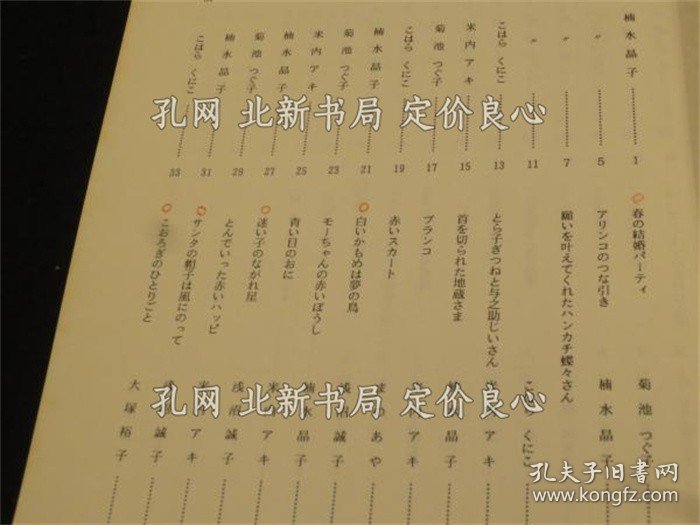 楠水晶子……1
〃……5
〃……7
〃……11
こはら くにこ……13
米内アキ……15
菊池つぐ子……17
こはら くにこ……19
楠水晶子……21
菊池つぐ子……23
米内アキ……25
楠水晶子……27
菊池つぐ子……29
楠水晶子……31
こはら くにこ……33
春の結婚パーティ 菊池つぐ子
アリンコのつな引き 楠水晶子
願いを叶えてくれたハンカチ蝶々さん くにこ
とら子ぎつねと与之助じいさん アキ
首を切られた地蔵さま 晶子
ブランコ アキ
赤いスカート あや
白いかもめは夢の鳥 誠子
モーちゃんの赤いぼうし 晶子
青い日のおに アキ
迷い子のながれ星 誠子
とんでいった赤いハッピ アキ
サンタの帽子は風にのって 誠子
こおろぎのひとりごと 大塚裕子
孔网 北新书局 定价良心
孔网 北新书局 定价良心
孔夫子旧书网
www.kongfz.com